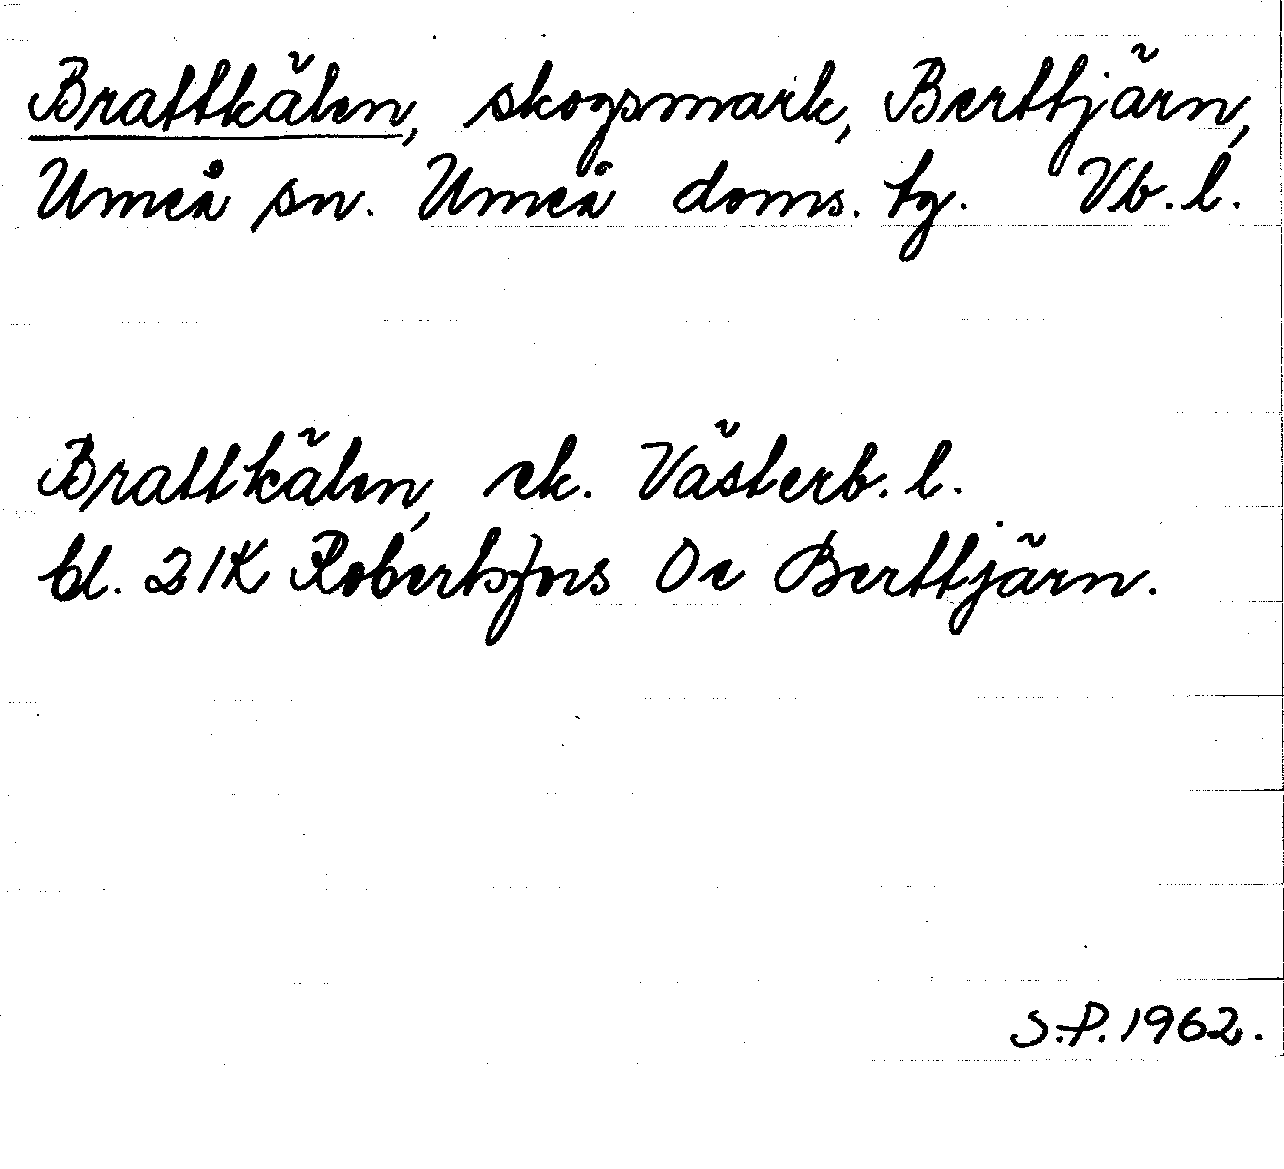 Brattkälen, skogsmark, Berttjärn,
Umeå sn. Umeå doms. tg. Vb. l.
Brattkälen, ek. Västerb. l.
bl. 21K Robertsfors 0e Berttjärn.
S.P. 1962.